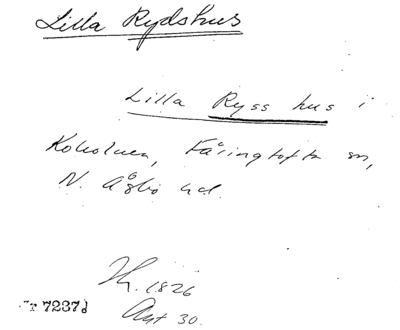 Lilla Rydshus
Lilla Ryss hus i
Fåringtofta sn,
N. Åsbo hd.
1826
Ant 30.
7237